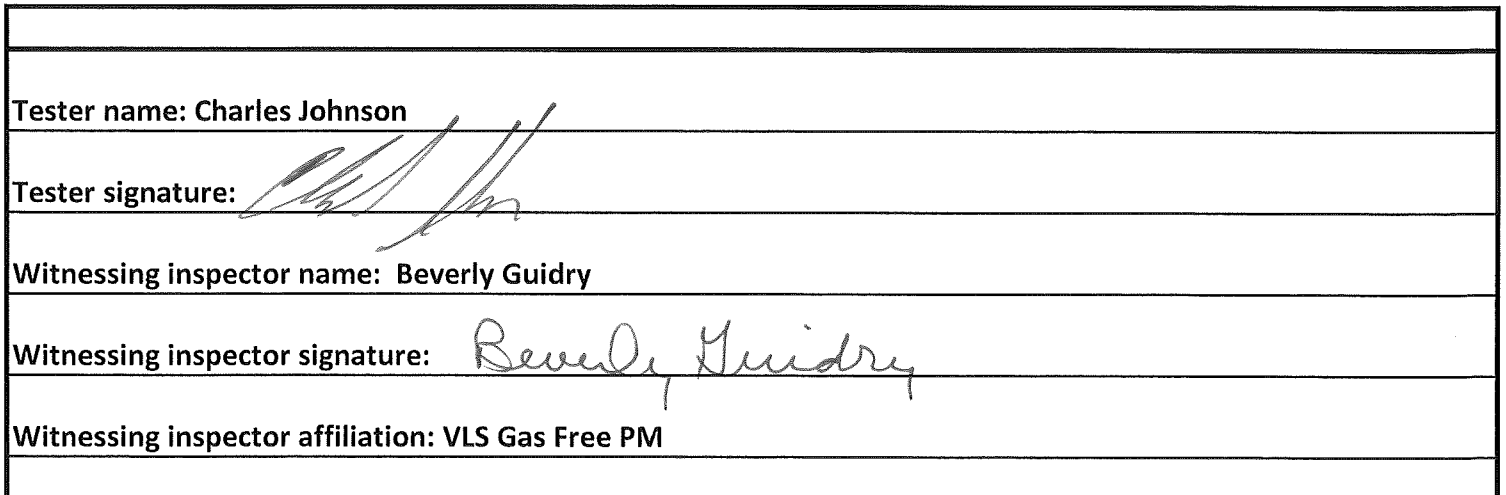 Tester name: Charles Johnson
Tester signature:
Witnessing inspector name: Beverly Guidry
Witnessing inspector signature: Beverly Guidry
Witnessing inspector affiliation: VLS Gas Free PM